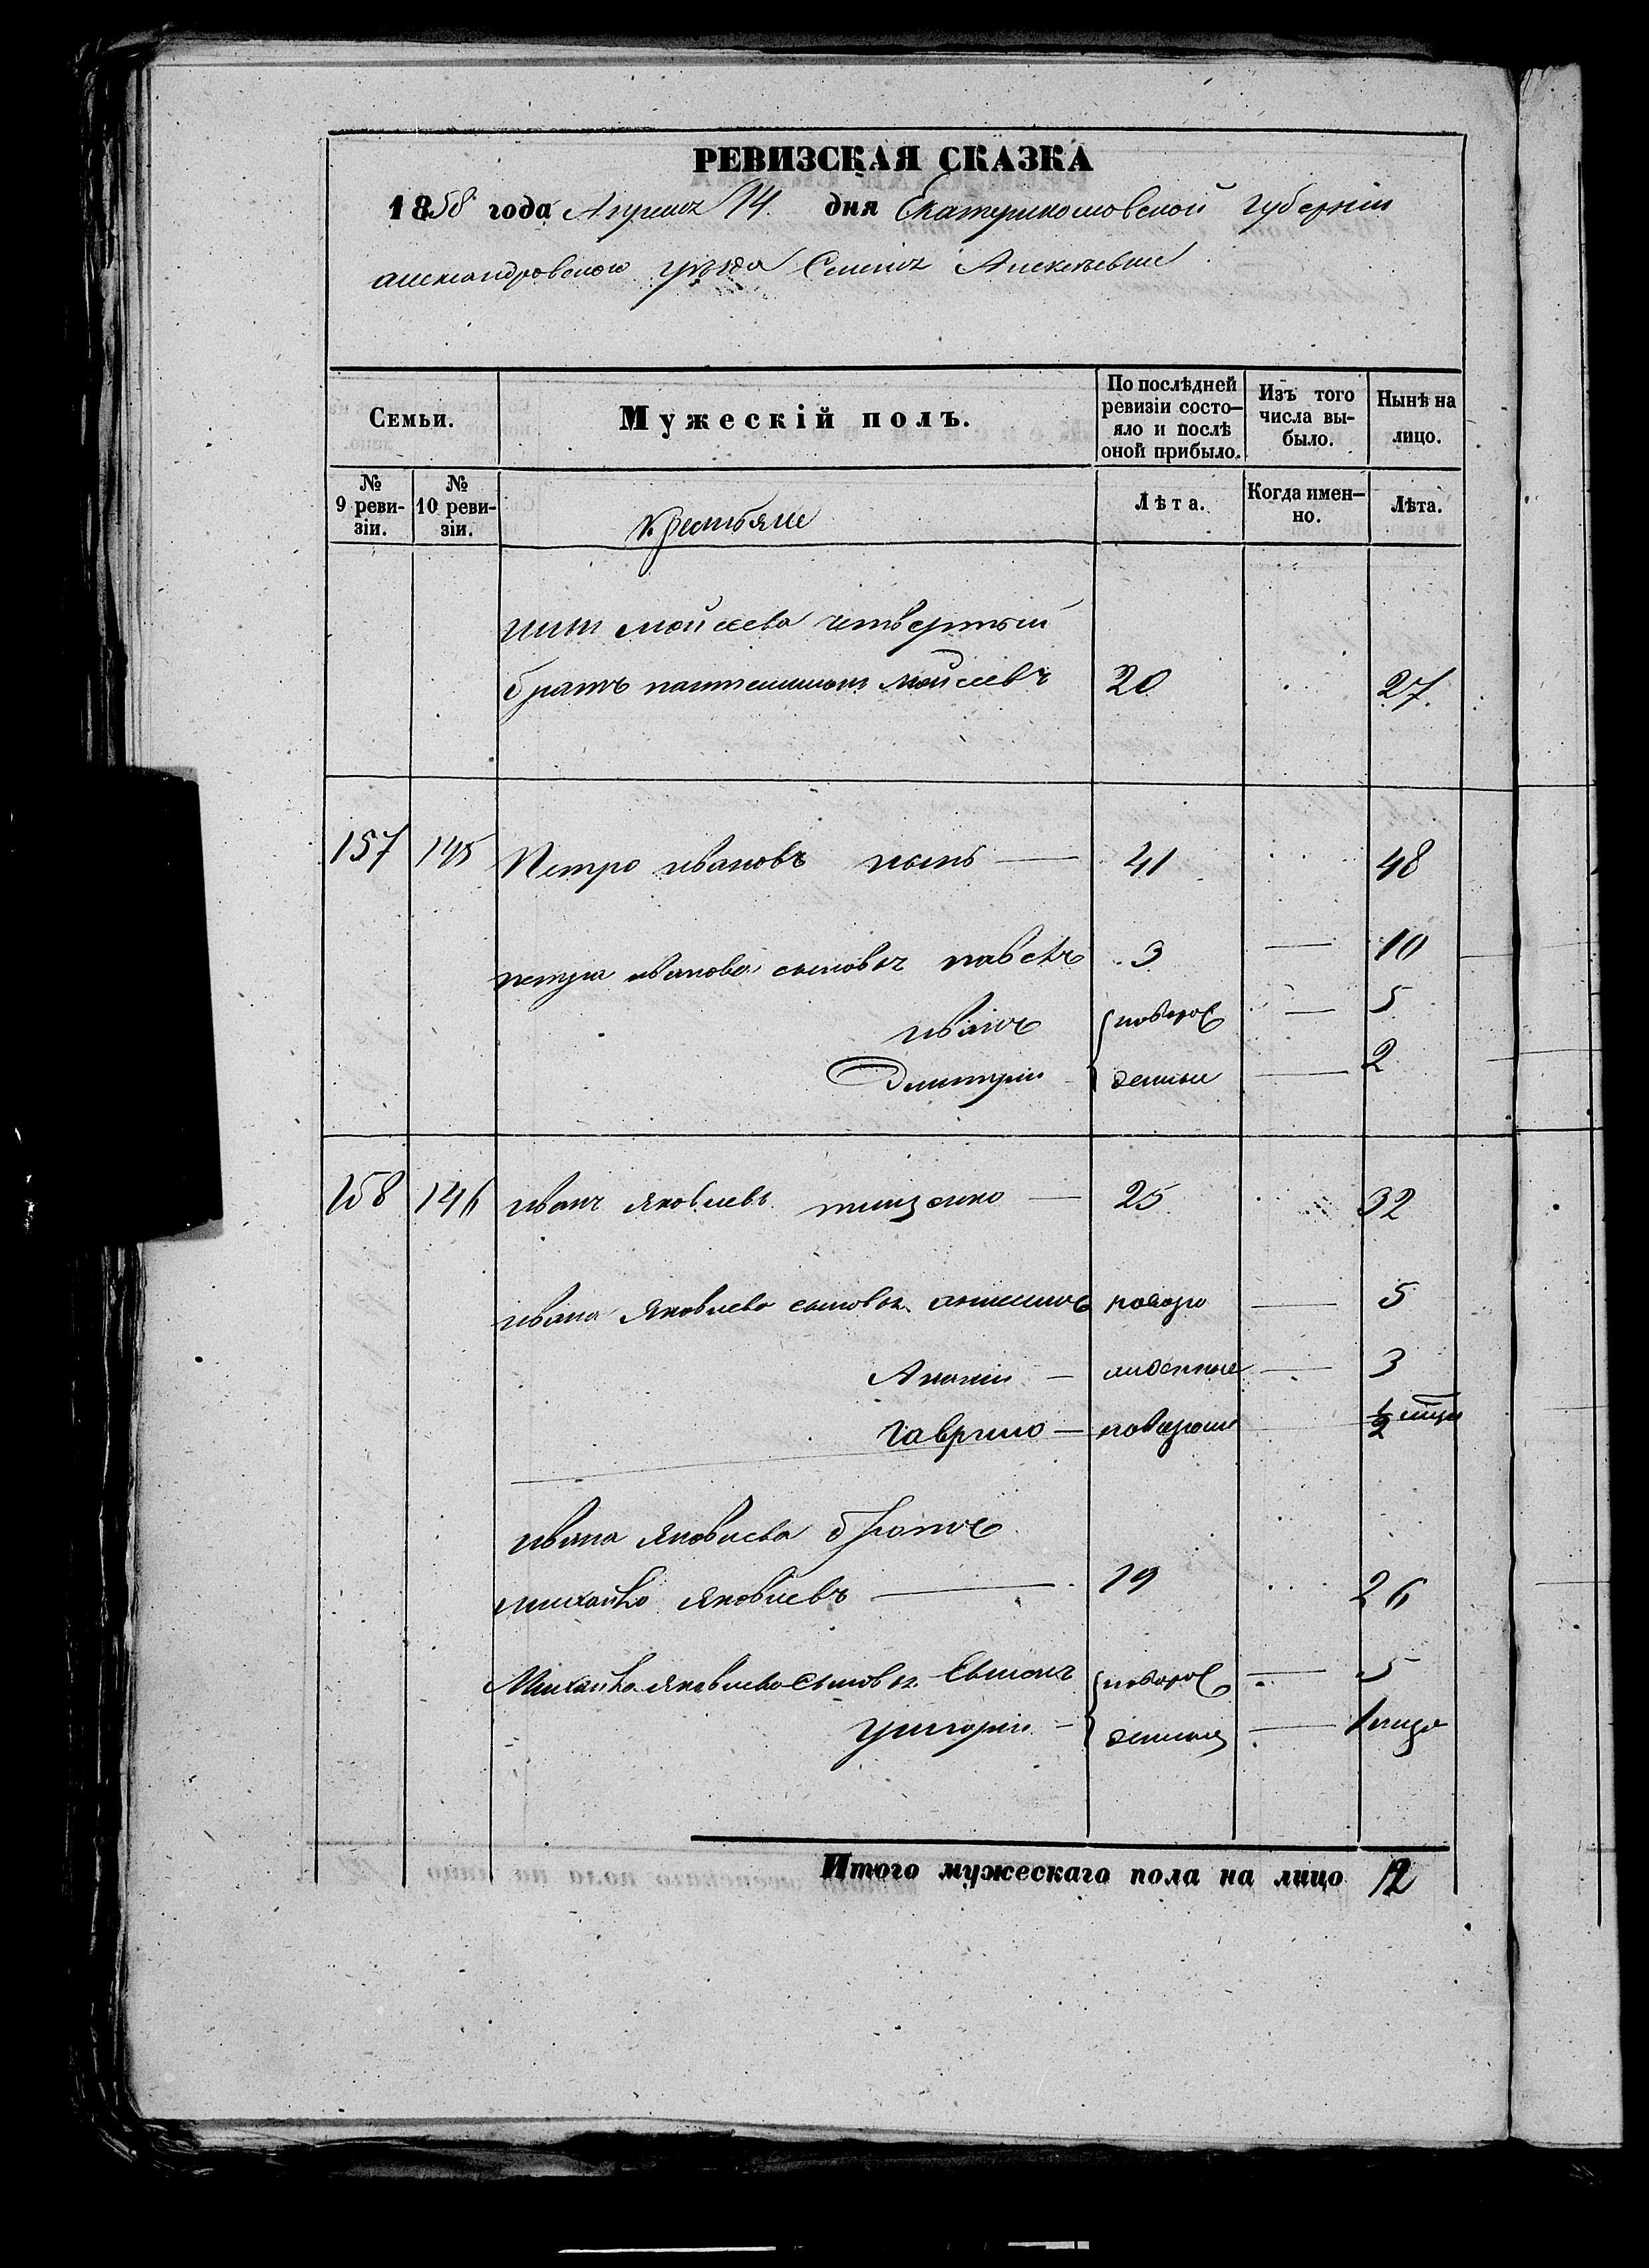 РЕВИЗСКАЯ СКАЗКА
1858 года Апреля 14. дня Екатеринославской губернiи
александровского уѣзда Селенiя Алексѣевки
Семьи.
Мужескiй полъ.
По послѣдней ревизiи состо-
яло и послѣ
оной прибыло.
Изъ того
числа вы-
было.
Нынѣ на
лицо.
№
9 реви-
зiи.
№
10 реви-
зiи.
Крестьяне
Лѣта.
Когда имен-
но.
Лѣта.
Моисеева четвертый
братъ пантелимонъ Моисеевъ 20 27.
157 145 Петро ивановъ 41 48
петра иванова сыновья павелъ 3 10
иванъ новорож 5
Дмитрiй денные 2
158 146 иванъ Яковлевъ 25 32
ивана Яковлева сыновья новоро 5
Ананiй жденные 3
гаврило новорож 1/2
ивана Яковлева братъ
михайло Яковлевъ 19 26
Михайла Яковлева сыновья новорож 5
григорiй денные 1 года
Итого мужескаго пола на лицо 12